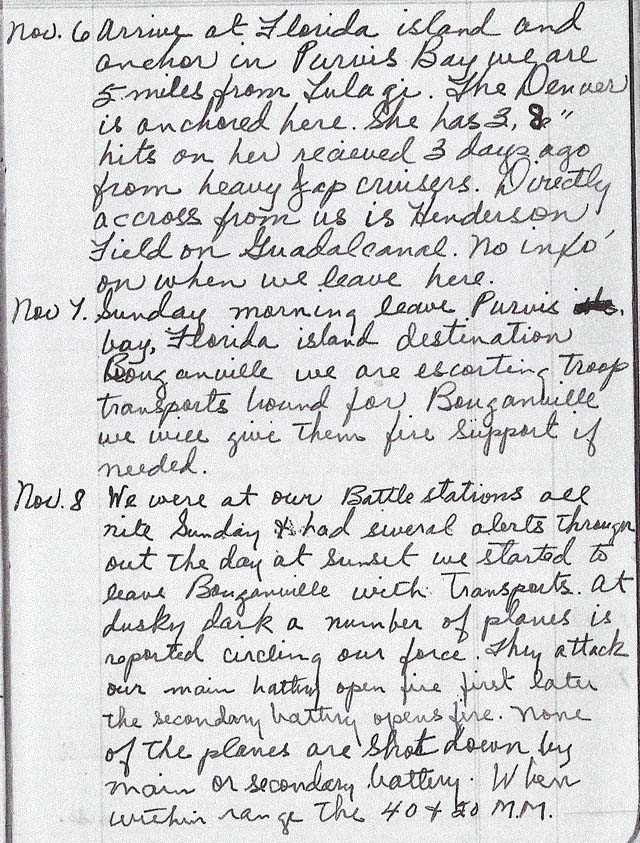 Nov. 6 Arrive at Florida island and
anchor in Purvis Bay we are
5 miles from Tulagi. The Denver
is anchored here. She has 3, 8"
hits on her recieved 3 days ago
from heavy Jap cruisers. Directly
accross from us is Henderson
Field on Guadalcanal. No info
on when we leave here.
Nov 7. Sunday morning leave Purvis
bay, Florida island destination
Bouganville we are escorting troop
transports bound for Bouganville
we will give them fire support if
needed.
Nov. 8 We were at our Battle stations all
nite Sunday & had several alerts through
out the day at sunset we started to
leave Bouganville with Transports. At
dusky dark a number of planes is
reported circling our force. They attack
our main battry open fire first later
the secondary battry opens fire. None
of the planes are shot down by
main or secondary battery. When
within range the 40 & 20 M.M.